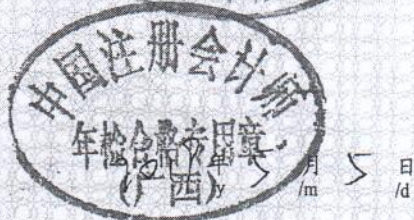 中国注册会计师
年检合格专用章
(广西)
年 5 月 5 日
/y /m /d